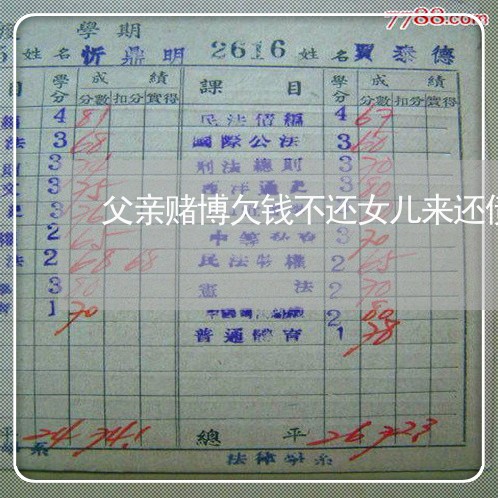 7788.com
學期
姓名 忻鼎明 2616 姓名 賈泰德
目 學分 成績 課目 學分 成績
分數 扣分 實得 分數 扣分 實得
4 81 民法債編 4 67
法 3 68 國際公法 3 60
3 刑法總則 3 70
3 75 西洋通史 3 80
父亲赌博欠钱不还女儿来还
2 65 3 70
法 2 68 68 民法物權 2 65
3 80 憲法 2 70
1 70 2 80
普通體育 1 78
平 24 74.1 總平 26 72.3
系 法律學系